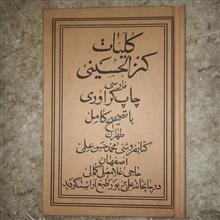 کلیات
کنز الحسینی
فارسی
چاپ گراوری
با تصحیح کامل
طهران
کتابفروشی محمد حسن علمی
اصفهان
حاجی غلامعلی
در چاپخانه علمی بزیور طبع آراسته گردید